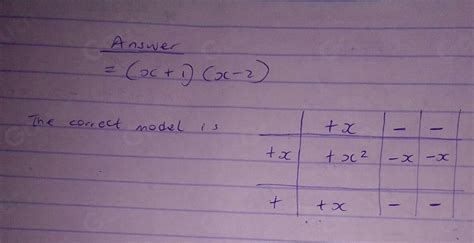 Answer
= (x+1) (x-2)
The correct model is
+x - -
+x +x² -x -x
+ +x - -